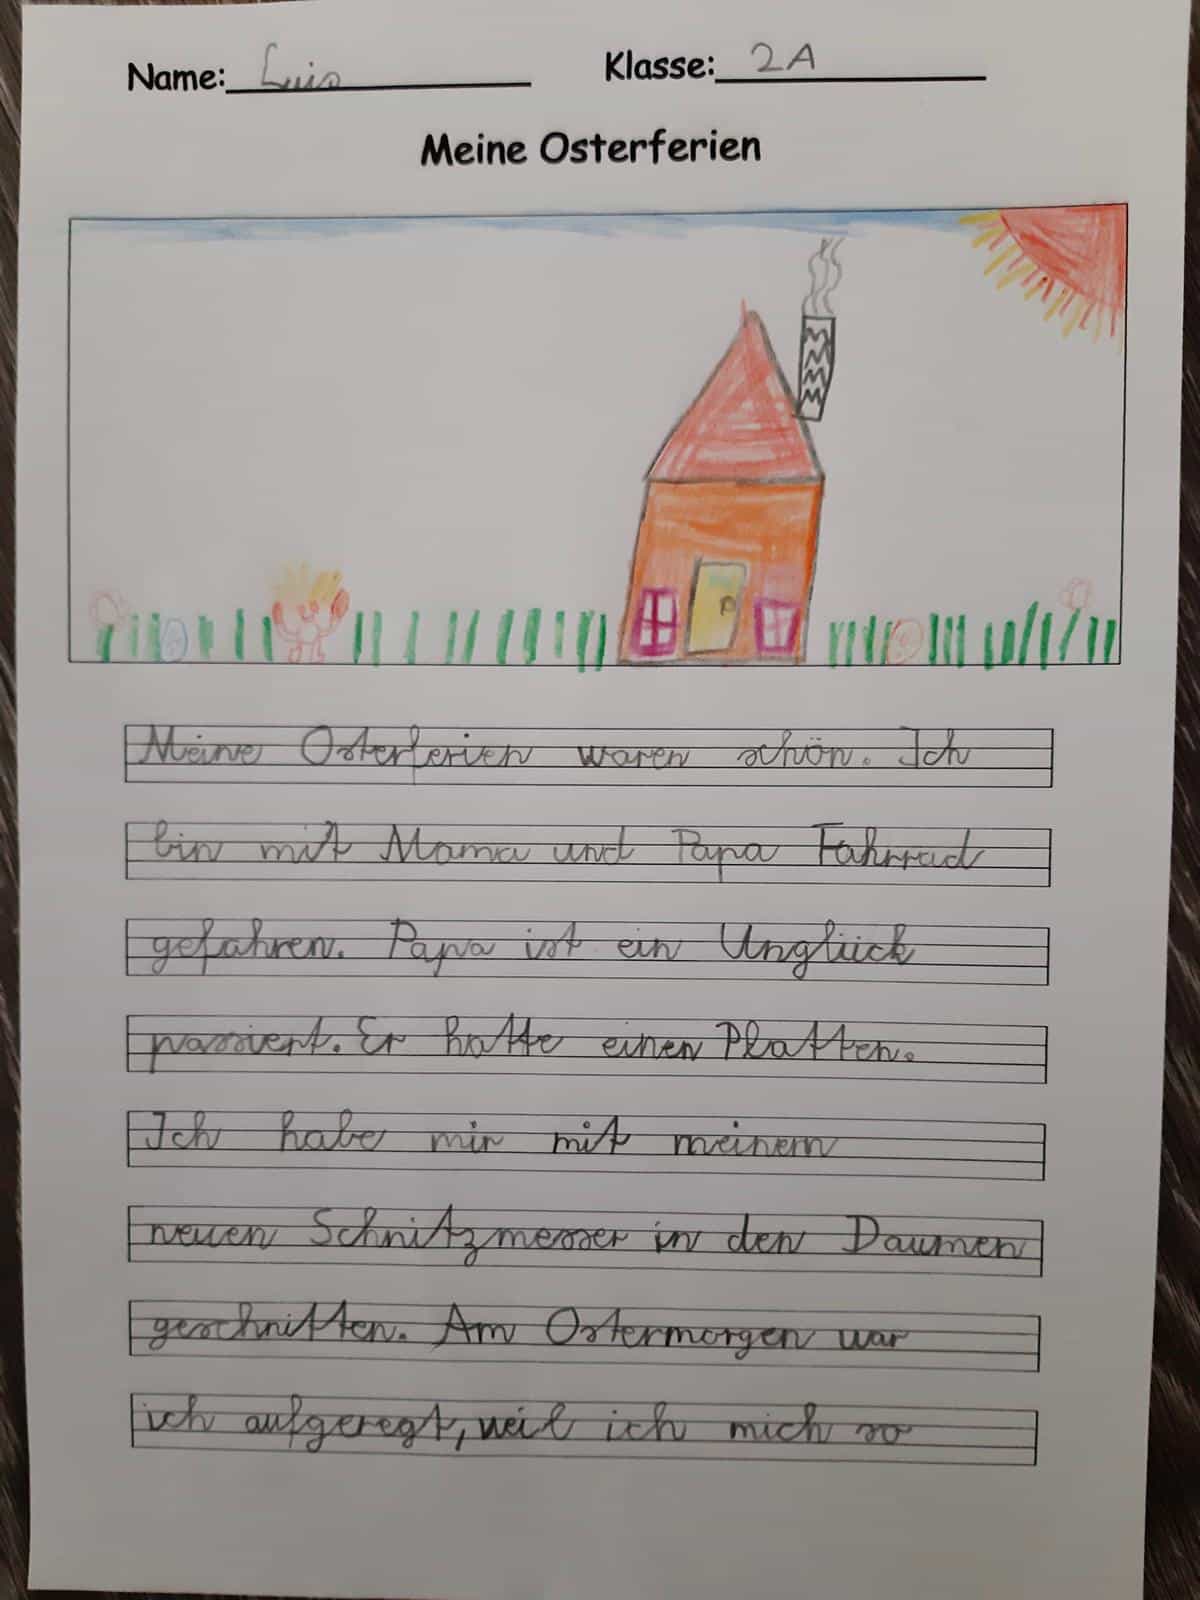 Name: Luis Klasse: 2A
Meine Osterferien
Meine Osterferien waren schön. Ich
bin mit Mama und Papa Fahrrad
gefahren. Papa ist ein Unglück
passiert. Er hatte einen Platten.
Ich habe mir mit meinem
neuen Schnitzmesser in den Daumen
geschnitten. Am Ostermorgen war
ich aufgeregt, weil ich mich so